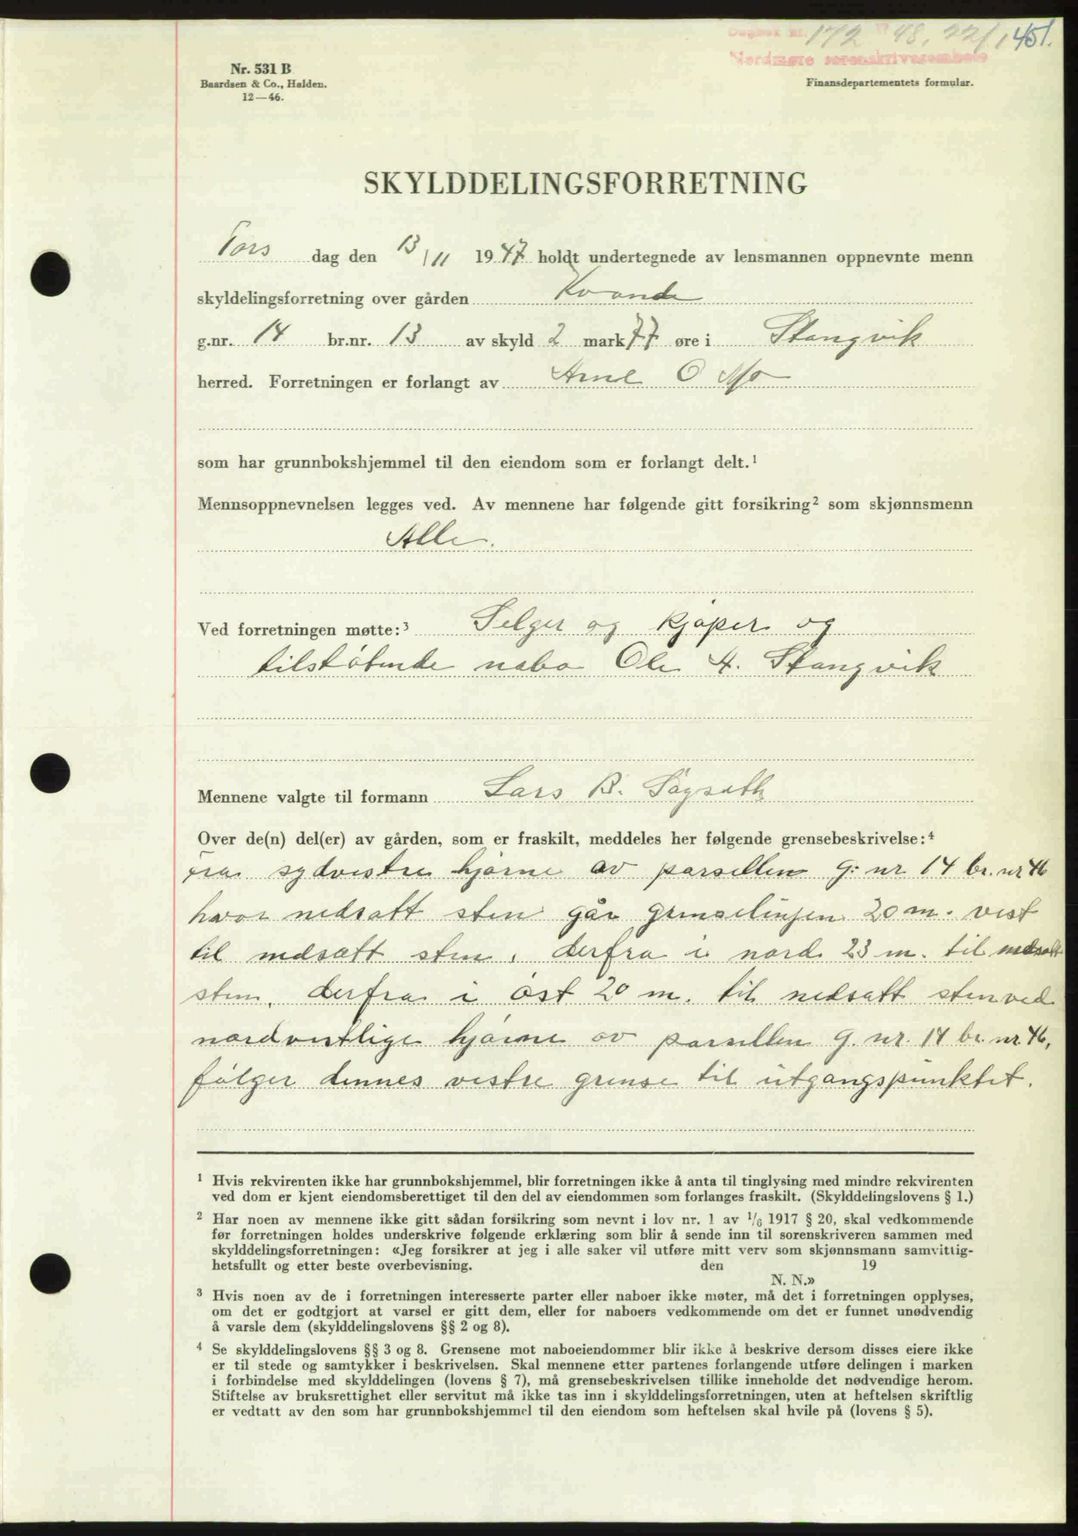 Dagbok nr. 172 48, 22/1 451.
Nordmøre sorenskriverembede
Nr. 531 B
Baardsen & Co., Halden.
12—46.
Finansdepartementets formular.
SKYLDDELINGSFORRETNING
Tors dag den 13/11 1947 holdt undertegnede av lensmannen oppnevnte menn
skyldelingsforretning over gården Kvande
g.nr. 14 br.nr. 13 av skyld 2 mark 77 øre i Stangvik
herred. Forretningen er forlangt av Arne O Mo
som har grunnbokshjemmel til den eiendom som er forlangt delt.¹
Mennsoppnevnelsen legges ved. Av mennene har følgende gitt forsikring² som skjønnsmenn
Alle.
Ved forretningen møtte:³ Selger og kjøper og
tilstøtende nabo Ole H. Stangvik
Mennene valgte til formann Lars B. Søgsæth
Over de(n) del(er) av gården, som er fraskilt, meddeles her følgende grensebeskrivelse:⁴
Fra sydvestre hjørne av parsellen g. nr 14 br. nr 46
hvor nedsatt sten går grenselinjen 20 m. vest
til nedsatt sten, derfra i nord 23 m. til nedsatt
sten, derfra i øst 20 m. til nedsatt sten ved
nordvestlige hjørne av parsellen g. nr. 14 br. nr 46,
følger dennes vestre grense til utgangspunktet.
¹ Hvis rekvirenten ikke har grunnbokshjemmel, blir forretningen ikke å anta til tinglysing med mindre rekvirenten
ved dom er kjent eiendomsberettiget til den del av eiendommen som forlanges fraskilt. (Skylddelingslovens § 1.)
² Har noen av mennene ikke gitt sådan forsikring som nevnt i lov nr. 1 av 1/6 1917 § 20, skal vedkommende
før forretningen holdes underskrive følgende erklæring som blir å sende inn til sorenskriveren sammen med
skylddelingsforretningen: «Jeg forsikrer at jeg i alle saker vil utføre mitt verv som skjønnsmann samvittig-
hetsfullt og etter beste overbevisning. den 19
N. N.»
³ Hvis noen av de i forretningen interesserte parter eller naboer ikke møter, må det i forretningen opplyses,
om det er godtgjort at varsel er gitt dem, eller for naboers vedkommende om det er funnet unødvendig
å varsle dem (skylddelingslovens §§ 2 og 8).
⁴ Se skylddelingslovens §§ 3 og 8. Grensene mot naboeiendommer blir ikke å beskrive dersom disses eiere ikke
er til stede og samtykker i beskrivelsen. Skal mennene etter partenes forlangende utføre delingen i marken
i forbindelse med skylddelingen (lovens § 7), må grensebeskrivelsen tillike inneholde det nødvendige herom.
Stiftelse av bruksrettighet eller servitut må ikke tas inn i skylddelingsforretningen, uten at heftelsen skriftlig
er vedtatt av den som har grunnbokshjemmel til den eiendom som heftelsen skal hvile på (lovens § 5).